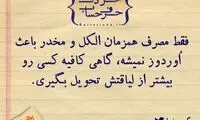 فقط مصرف همزمان الکل و مخدر باعث
آوردوز نمیشه، گاهی کافیه کسی رو
بیشتر از لیاقتش تحویل بگیری.